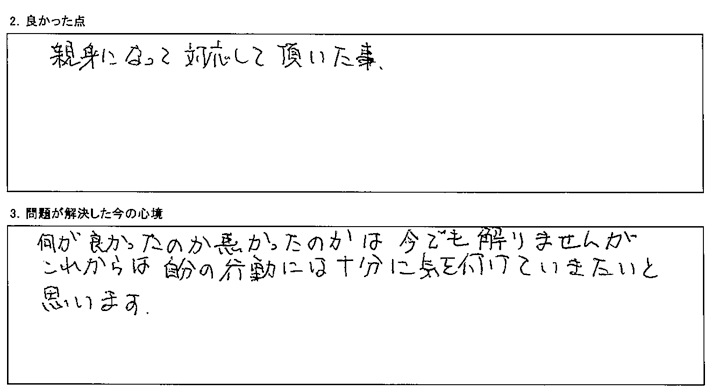 2. 良かった点
親身になって対応して頂いた事.
3. 問題が解決した今の心境
何が良かったのか悪かったのかは今でも解りませんが
これからは自分の行動には十分に気を付けていきたいと
思います.